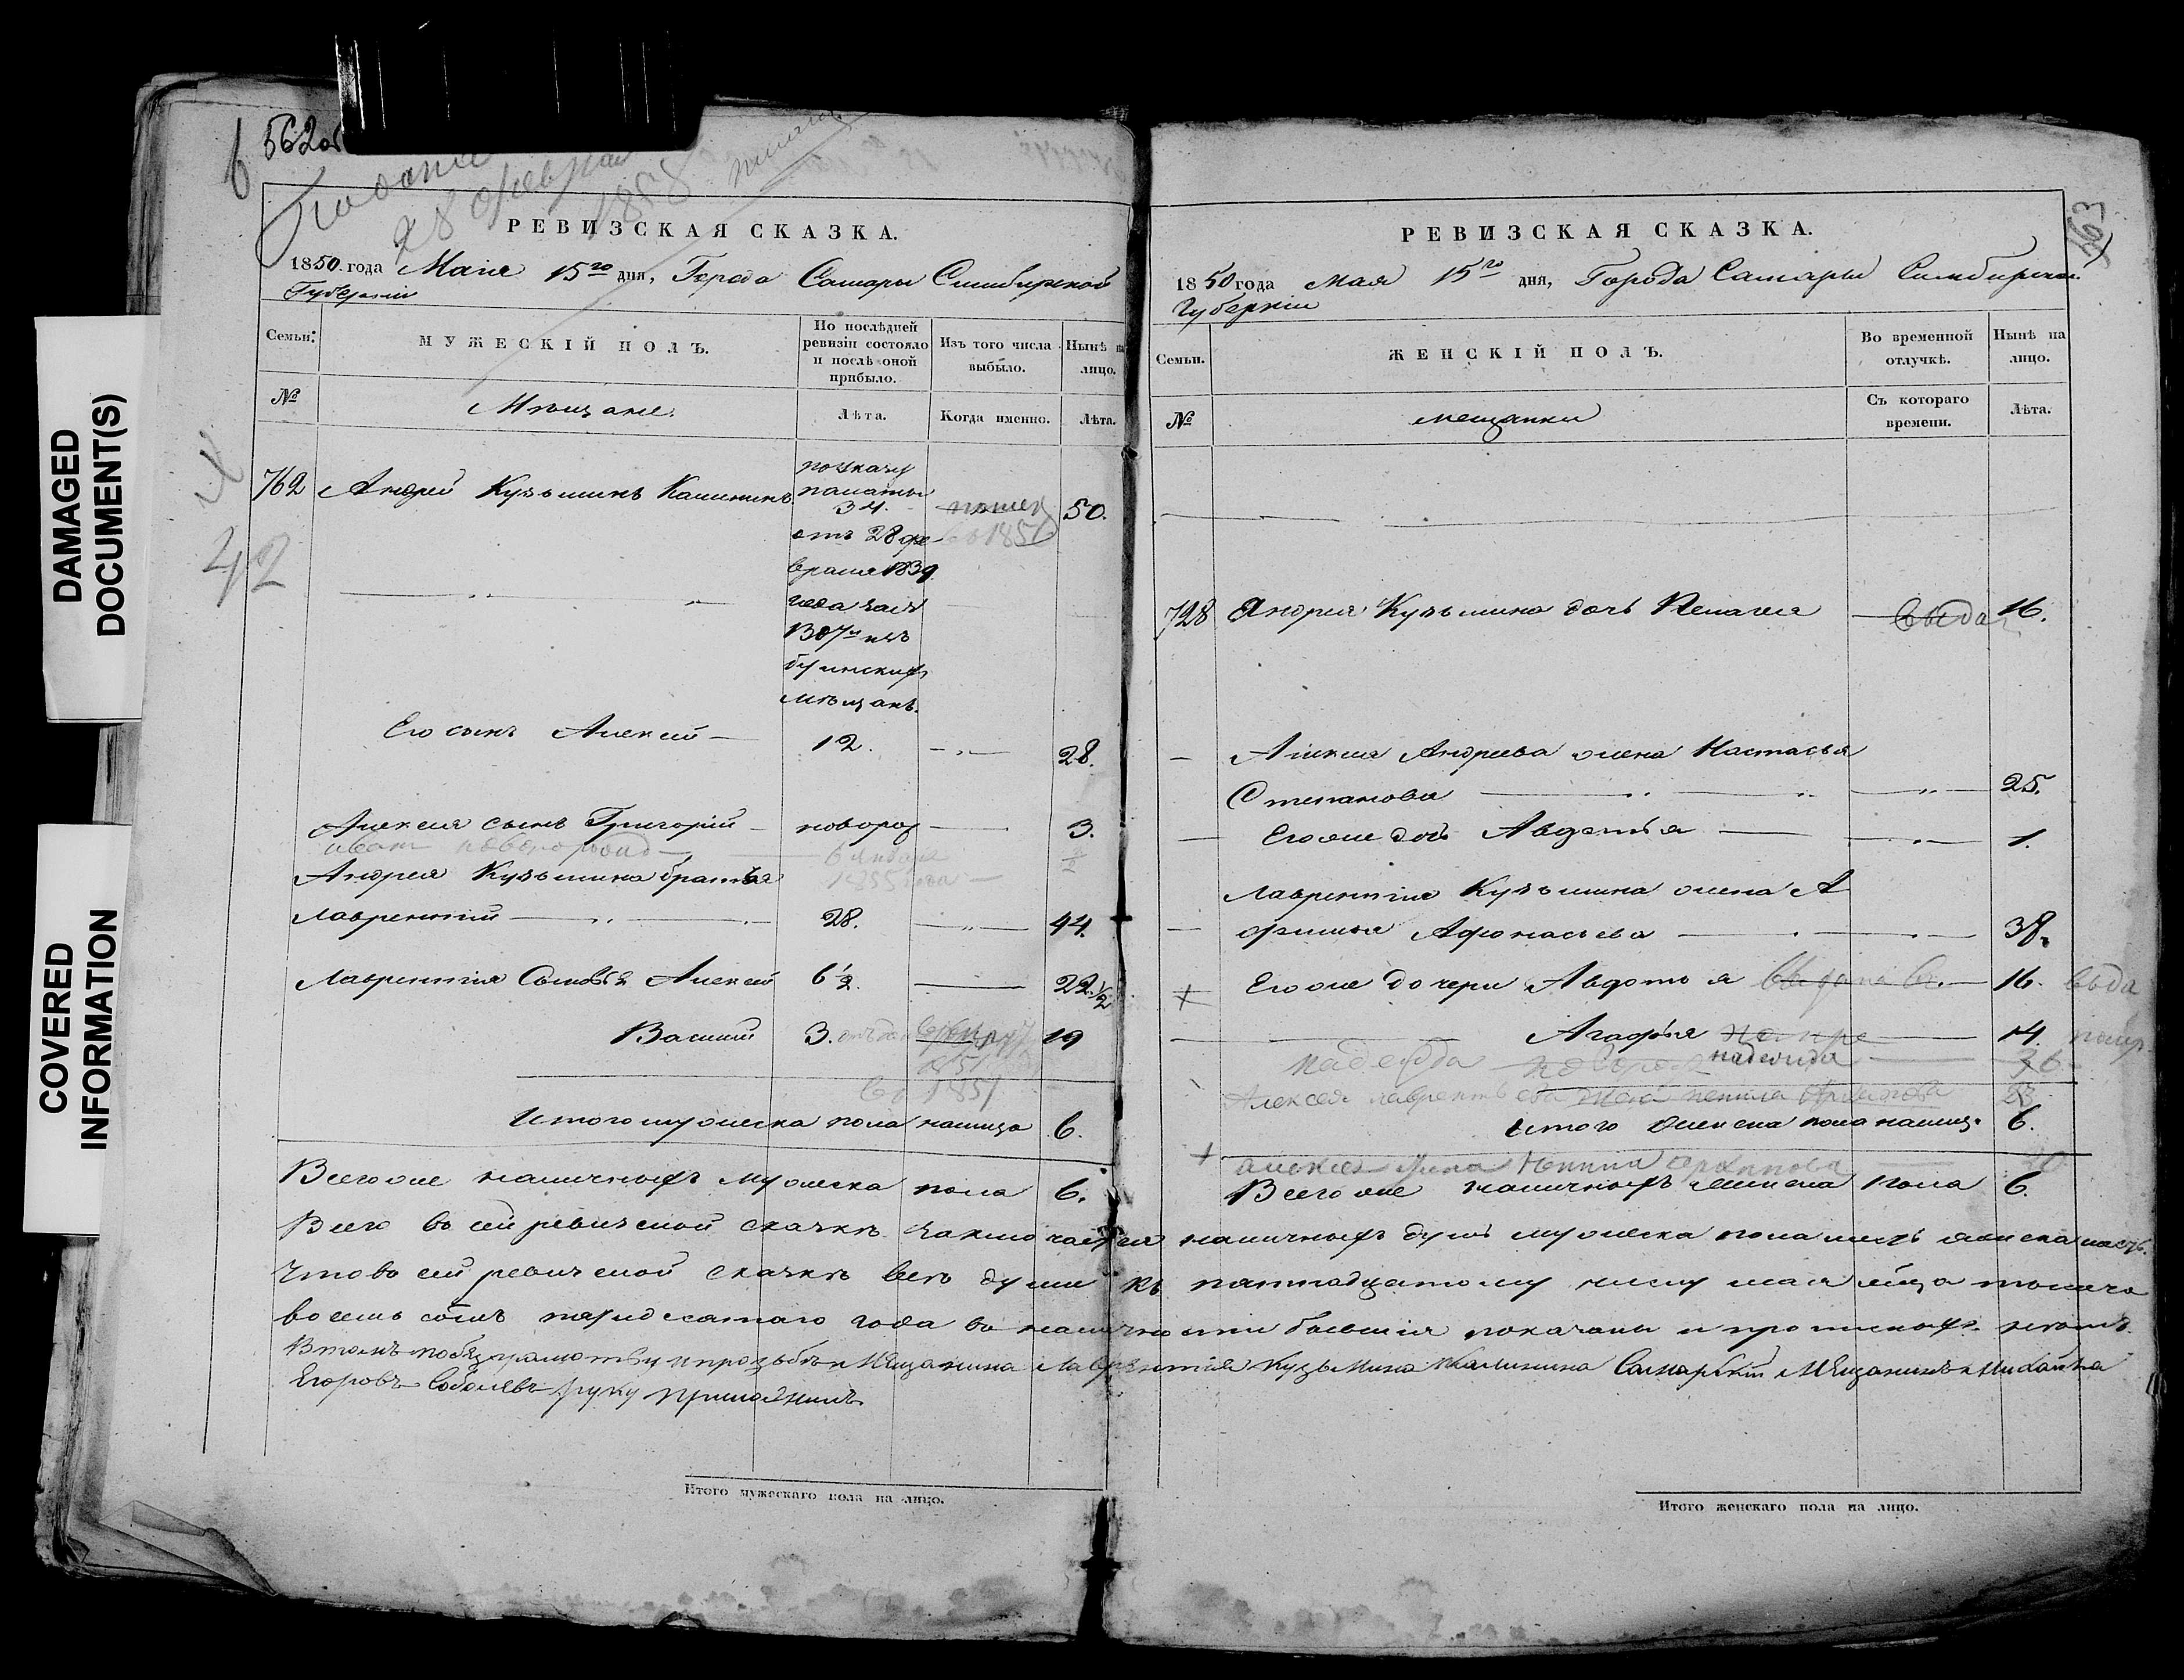 DAMAGED
DOCUMENT(S)
COVERED
INFORMATION
562об
28 февраля
1858
РЕВИЗСКАЯ СКАЗКА.
1850. года Маiя 15го дня, Города Самары Симбирской
Губернiи
Семьи:
МУЖЕСКIЙ ПОЛЪ.
По послѣдней ревизiи состояло и послѣ оной прибыло.
Изъ того числа выбыло.
Нынѣ на лицо.
№
Мѣщане.
Лѣта.
Когда именно.
Лѣта.
42
762 Андрей Кузьминъ Калининъ
по указу
палаты
34.
отъ 28 фе
враля 1839
года за №
1307м изъ
буинскихъ
мѣщанъ.
50.
Его сынъ Алексей 12. 28.
Алексея сынъ Григорiй новорож 3.
Иванъ новорожд 6 января
1855 года
Андрея Кузьмина братья
Лаврентiй 28. 44.
Лаврентiя Сыновья Алексей 6½. 22.½
Василий 3. 19
1851
Итого мужеска пола налицо 6.
Всего же наличныхъ мужеска пола 6.
563
РЕВИЗСКАЯ СКАЗКА.
1850 года мая 15го дня, Города Самары Симбирской
Губернiи
Семьи.
ЖЕНСКIЙ ПОЛЪ.
Во временной отлучкѣ.
Нынѣ на лицо.
№
мещанки
Съ котораго времени.
Лѣта.
728 Андрея Кузьмина дочь Пелагея выда 16.
Алексея Андреева жена Настасья
Степанова 25.
Его же дочь Авдотья 1.
Лаврентiя Кузьмина жена А
фимья Афонасьева 38.
Его же дочери Авдотья 16. выда
Агафья 14.
надежда надежда
Алексея лаврентьева жена
Итого женска пола налиц. 6.
алексея жена
Всего же наличныхъ женска пола 6.
Всего в сей ревизской сказкѣ заключается наличныхъ душъ мужеска пола шесть женска шесть.
Что в сей ревизской сказкѣ все души къ пятнадцатому числу мая мѣсяца тысяча
восемь сотъ пятидесятаго года въ наличности бывшiя показаны и прописныхъ нетъ.
В томъ по безграмотству и прозьбѣ Мѣщанина Лаврентiя Кузьмина Калинина Самарскiй Мѣщанинъ Михайла
Егоровъ Соболевъ руку приложилъ
Итого мужескаго пола на лицо.
Итого женскаго пола на лицо.